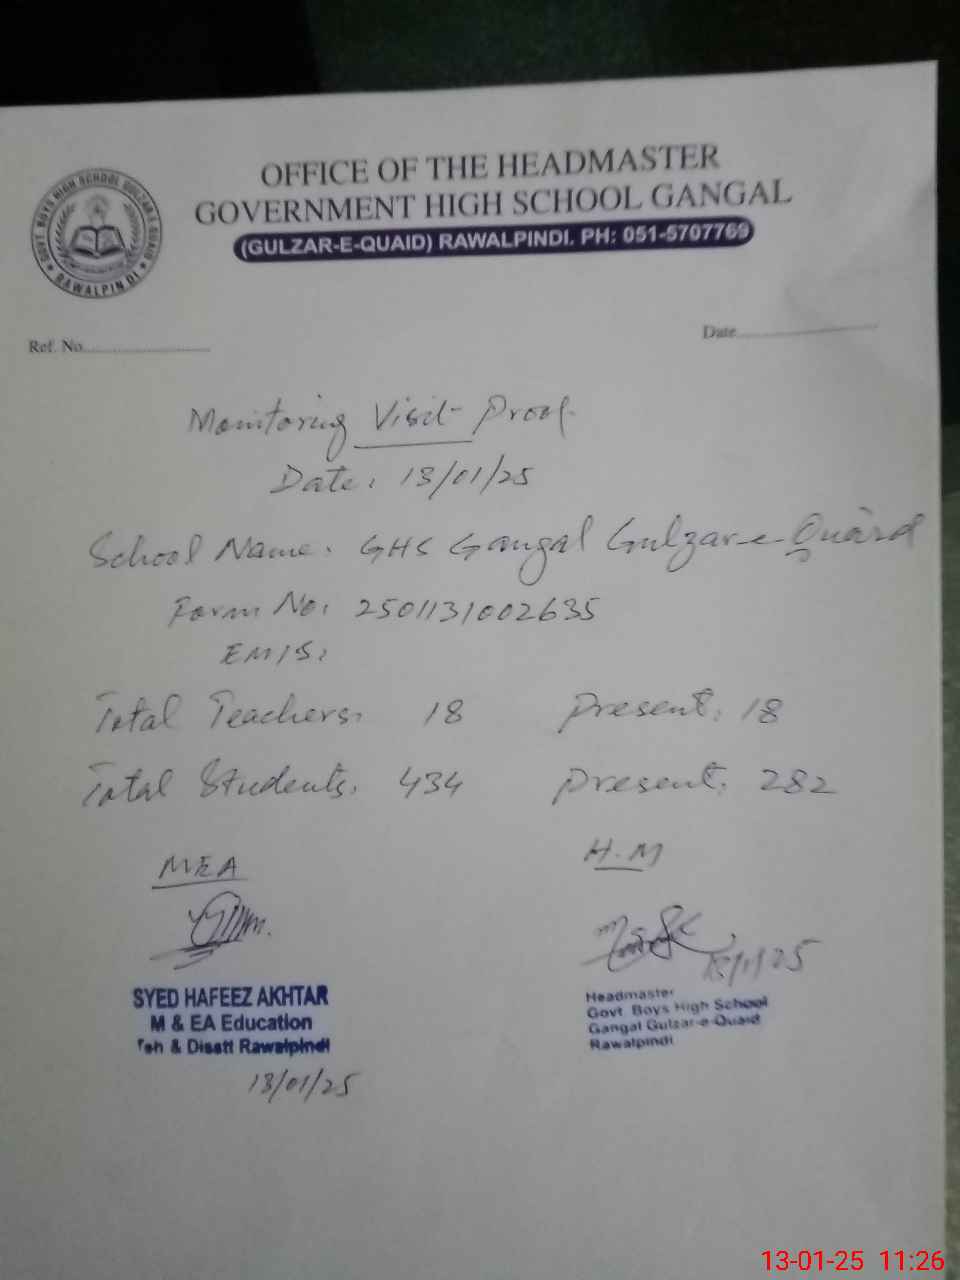 OFFICE OF THE HEADMASTER
GOVERNMENT HIGH SCHOOL GANGAL
(GULZAR-E-QUAID) RAWALPINDI. PH: 051-5707769
GOVT. BOYS HIGH SCHOOL GULZAR-E-QUAID
RAWALPINDI
Ref. No
Date
Monitoring Visit Proof
Date: 13/01/25
School Name: GHS Gangal Gulzar-e-Quaid
Form No: 2501131002635
EMIS:
Total Teachers: 18 Present: 18
Total Students: 434 Present: 282
MEA H.M
13/1/25
SYED HAFEEZ AKHTAR
M & EA Education
Teh & Disstt Rawalpindi
13/01/25
Headmaster
Govt. Boys High School
Gangal Gulzar-e-Quaid
Rawalpindi
13-01-25 11:26